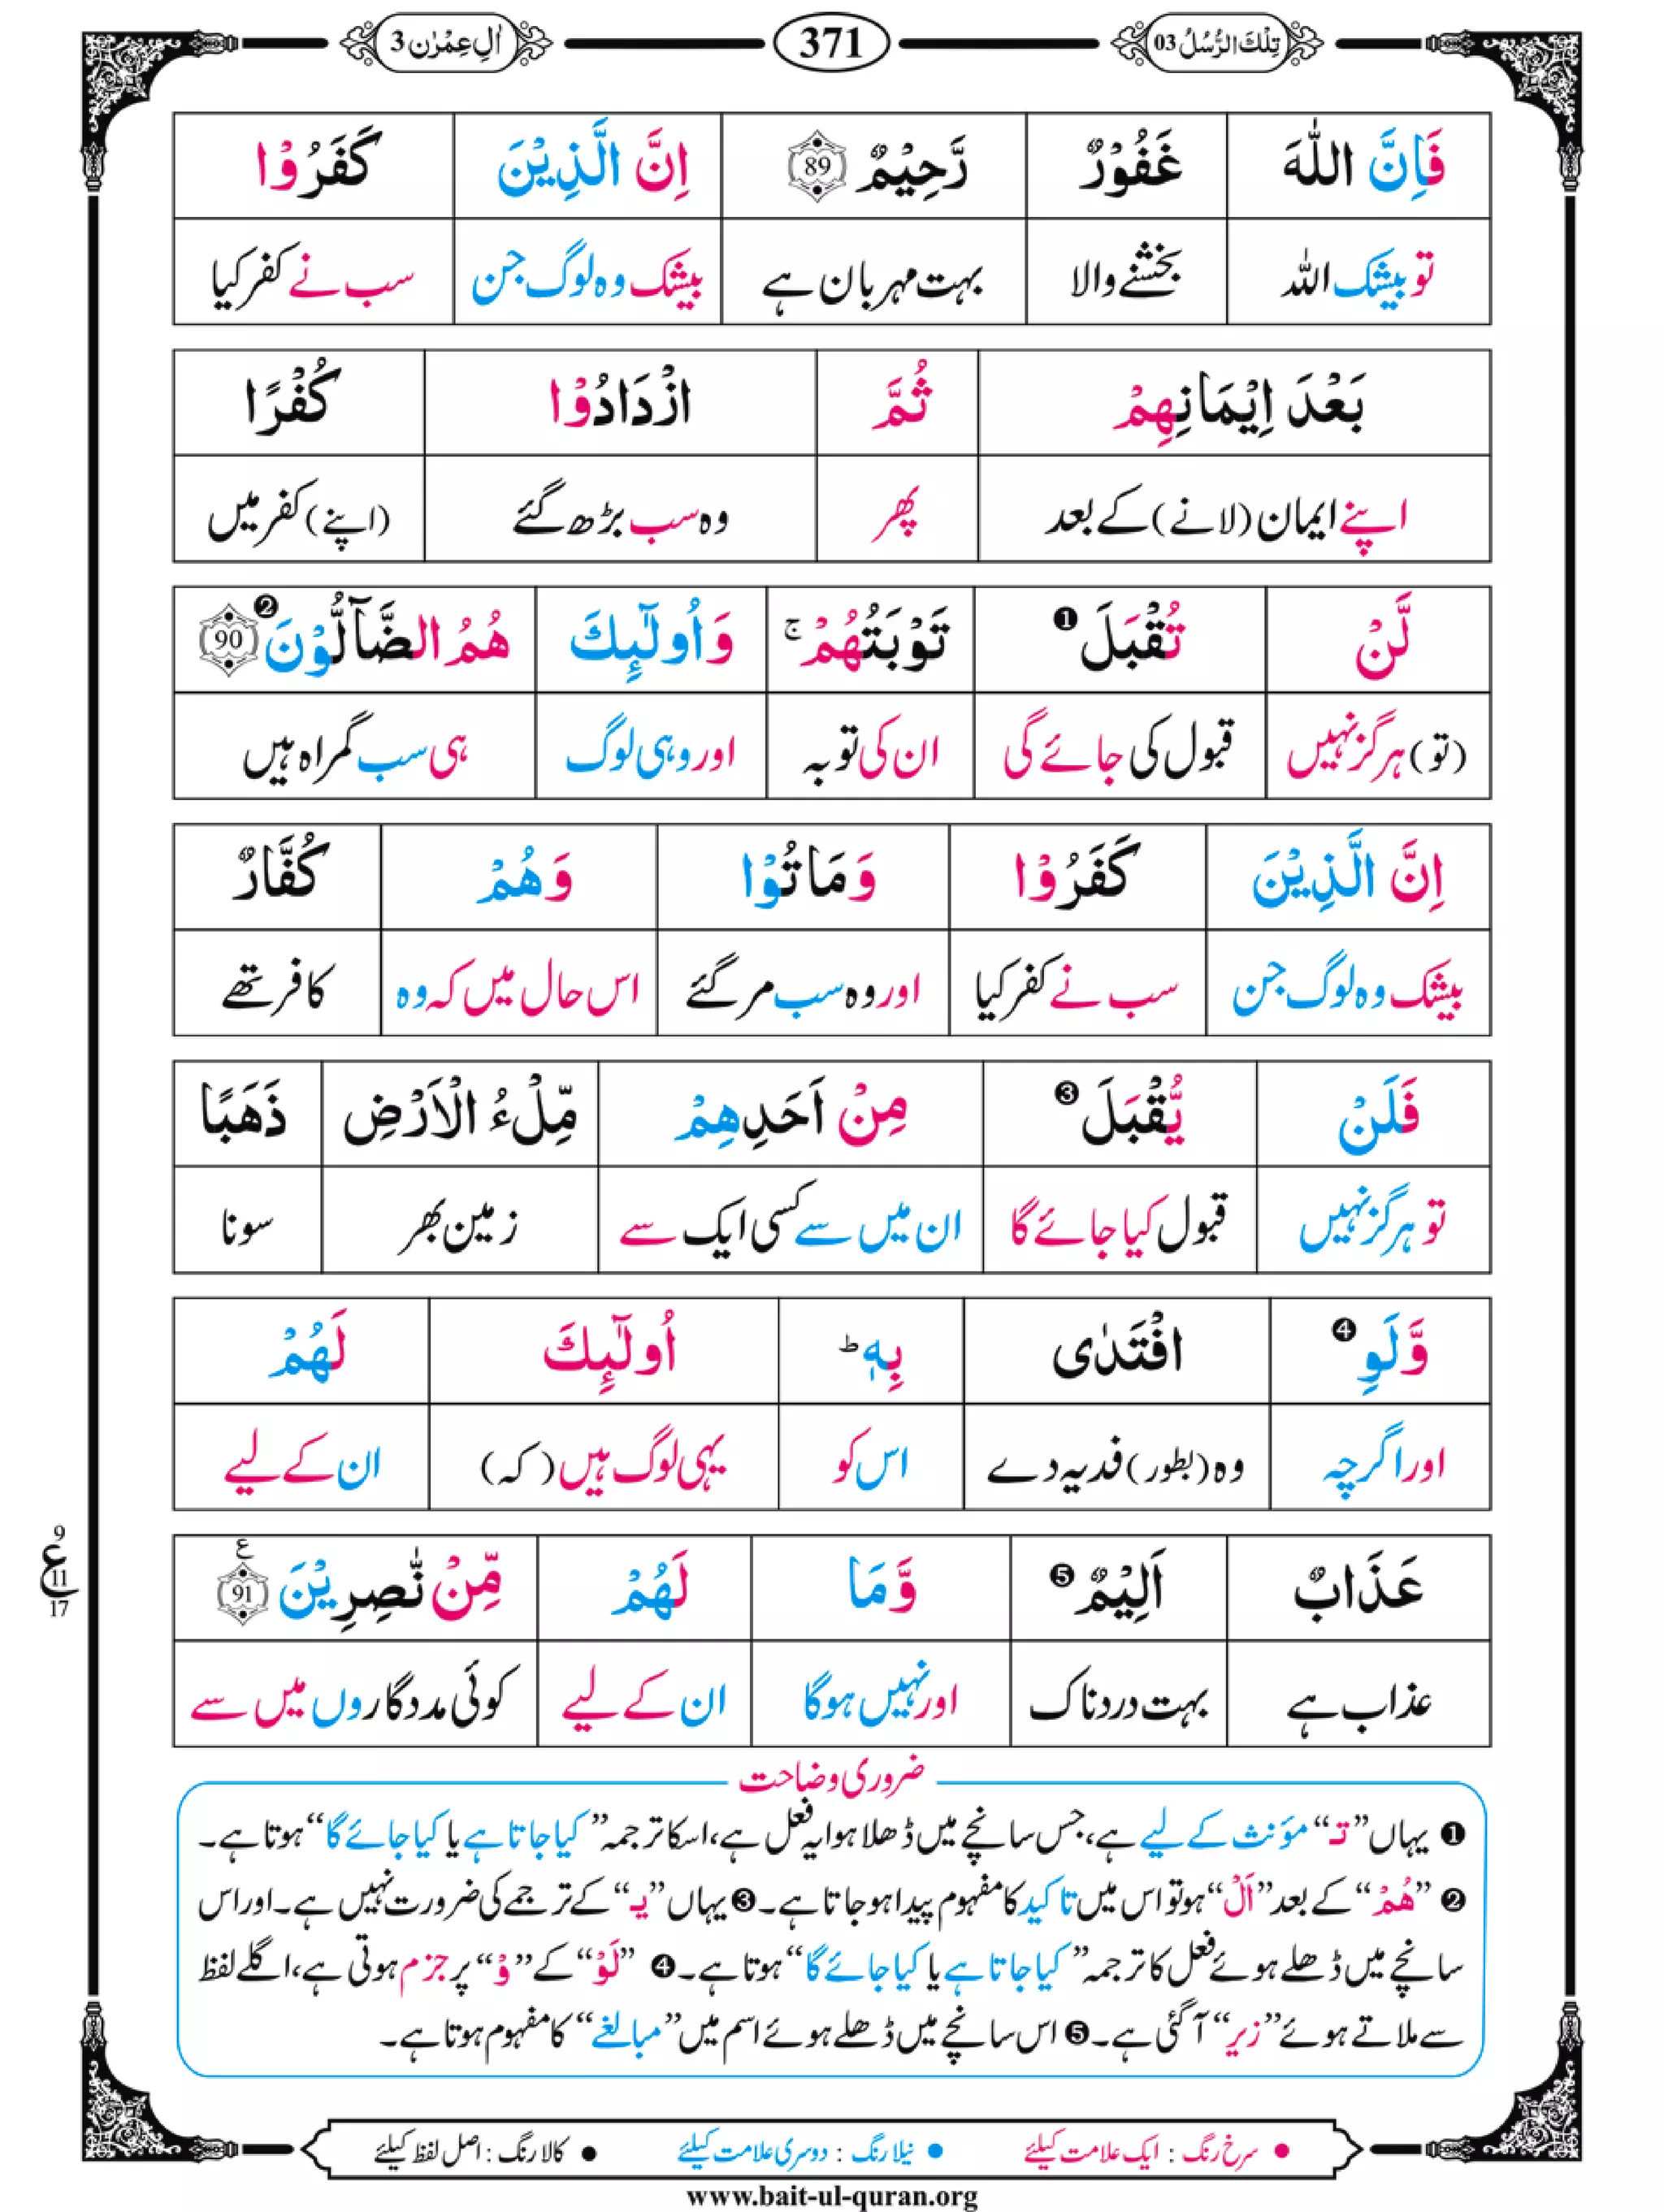 تِلْكَ الرُّسُلُ 03
371
اٰلِ عِمْرٰن 3
فَاِنَّ اللّٰهَ غَفُوْرٌ رَّحِيْمٌ 89 اِنَّ الَّذِيْنَ كَفَرُوْا
تو بیشک اللہ بخشنے والا بہت مہربان ہے بیشک وہ لوگ جن سب نے کفر کیا
بَعْدَ اِيْمَانِهِمْ ثُمَّ ازْدَادُوْا كُفْرًا
اپنے ایمان (لانے) کے بعد پھر وہ سب بڑھ گئے (اپنے) کفر میں
لَّنْ تُقْبَلَ ❶ تَوْبَتُهُمْ ۚ وَاُولٰٓئِكَ هُمُ الضَّآلُّوْنَ ❷ 90
(تو) ہرگز نہیں قبول کی جائے گی ان کی توبہ اور وہی لوگ ہی سب گمراہ ہیں
اِنَّ الَّذِيْنَ كَفَرُوْا وَمَاتُوْا وَهُمْ كُفَّارٌ
بیشک وہ لوگ جن سب نے کفر کیا اور وہ سب مر گئے اس حال میں کہ وہ کافر تھے
فَلَنْ يُّقْبَلَ ❸ مِنْ اَحَدِهِمْ مِّلْءُ الْاَرْضِ ذَهَبًا
تو ہرگز نہیں قبول کیا جائے گا ان میں سے کسی ایک سے زمین بھر سونا
وَّلَوِ ❹ افْتَدٰى بِهٖ ؕ اُولٰٓئِكَ لَهُمْ
اور اگرچہ وہ (بطور) فدیہ دے اس کو یہی لوگ ہیں (کہ) ان کے لیے
عَذَابٌ اَلِيْمٌ ❺ وَّمَا لَهُمْ مِّنْ نّٰصِرِيْنَ 91 ع
9
ع 11
17
عذاب ہے بہت دردناک اور نہیں ہوگا ان کے لیے کوئی مددگاروں میں سے
ضروری وضاحت
❶ یہاں ”تـ“ مؤنث کے لیے ہے، جس سانچے میں ڈھلا ہوا یہ فعل ہے، اسکا ترجمہ ”کیا جاتا ہے یا کیا جائے گا“ ہوتا ہے۔
❷ ”هُمْ“ کے بعد ”اَلْ“ ہو تو اس میں تاکید کا مفہوم پیدا ہو جاتا ہے۔ ❸ یہاں ”یـ“ کے ترجمے کی ضرورت نہیں ہے۔ اور اس
سانچے میں ڈھلے ہوئے فعل کا ترجمہ ”کیا جاتا ہے یا کیا جائے گا“ ہوتا ہے۔ ❹ ”لَوْ“ کے ”وْ“ پر جزم ہوتی ہے، اگلے لفظ
سے ملاتے ہوئے ”زیر“ آ گئی ہے۔ ❺ اس سانچے میں ڈھلے ہوئے اسم میں ”مبالغے“ کا مفہوم ہوتا ہے۔
● سرخ رنگ : ایک علامت کیلئے ● نیلا رنگ : دوسری علامت کیلئے ● کالا رنگ : اصل لفظ کیلئے
www.bait-ul-quran.org